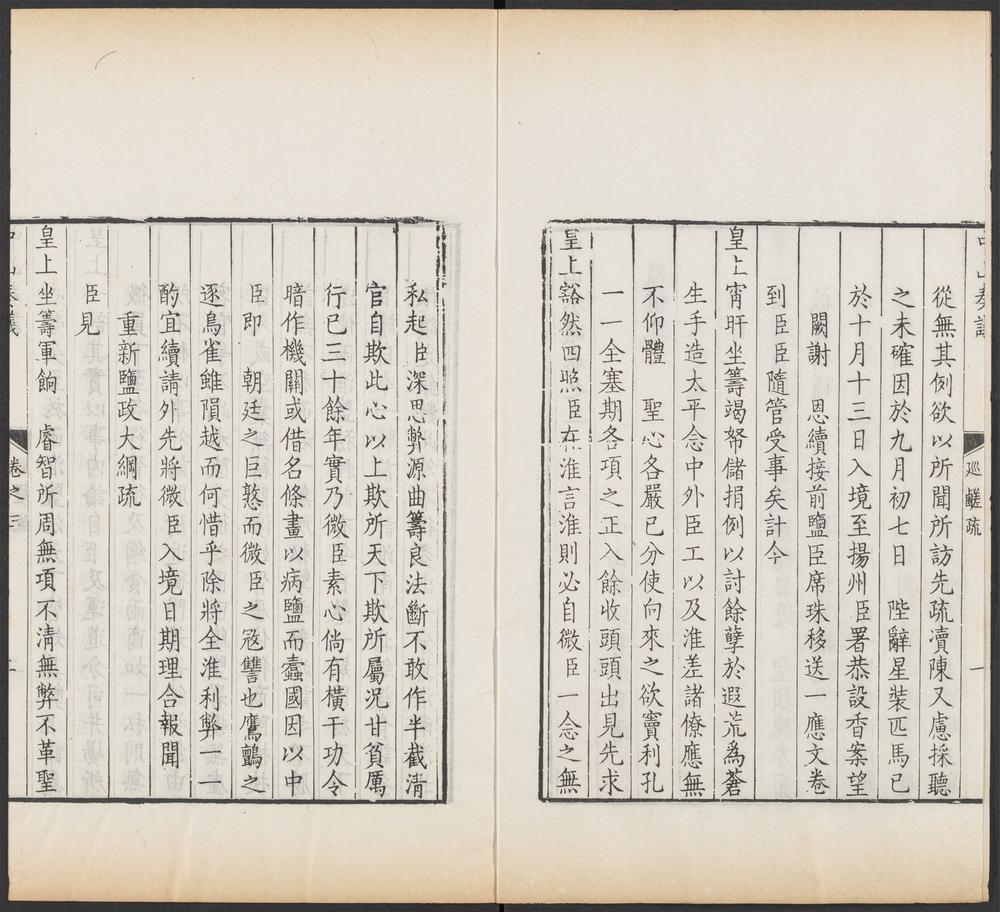 從無其例欲以所聞所訪先疏瀆陳又慮採聽
之未確因於九月初七日 陛辭星裝匹馬已
於十月十三日入境至揚州臣署恭設香案望
闕謝 恩續接前鹽臣席珠移送一應文卷
到臣臣隨管受事矣計今
皇上宵旰坐籌竭帑儲捐例以討餘孽於遐荒爲蒼
生手造太平念中外臣工以及淮差諸僚應無
不仰體 聖心各嚴已分使向來之欲竇利孔
一一全塞期各項之正入餘收頭頭出見先求
皇上豁然四照臣在淮言淮則必自微臣一念之無
巡鹺疏
一
私起臣深思弊源曲籌良法斷不敢作半截清
官自欺此心以上欺所天下欺所屬況甘貧厲
行已三十餘年實乃微臣素心倘有橫干功令
暗作機關或借名條畫以病鹽而蠹國因以中
臣即 朝廷之巨憝而微臣之寇讐也鷹鸇之
逐鳥雀雖隕越而何惜乎除將全淮利弊一一
酌宜續請外先將微臣入境日期理合報聞
重新鹽政大綱疏
臣見
皇上坐籌軍餉 睿智所周無項不淸無弊不革聖
卷之三